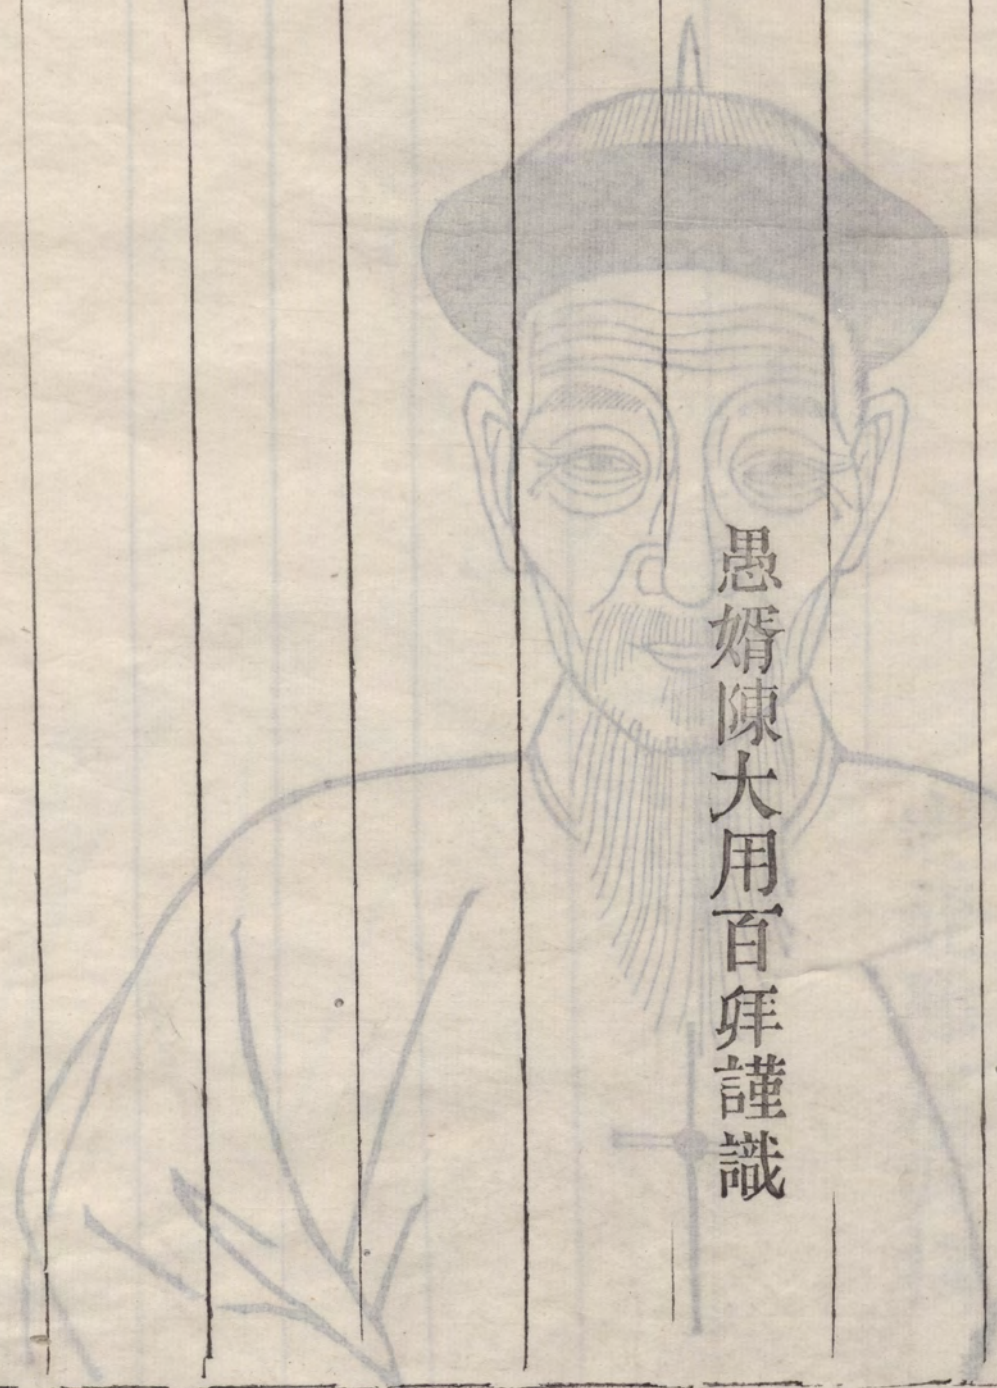 愚婿陳大用百拜謹識